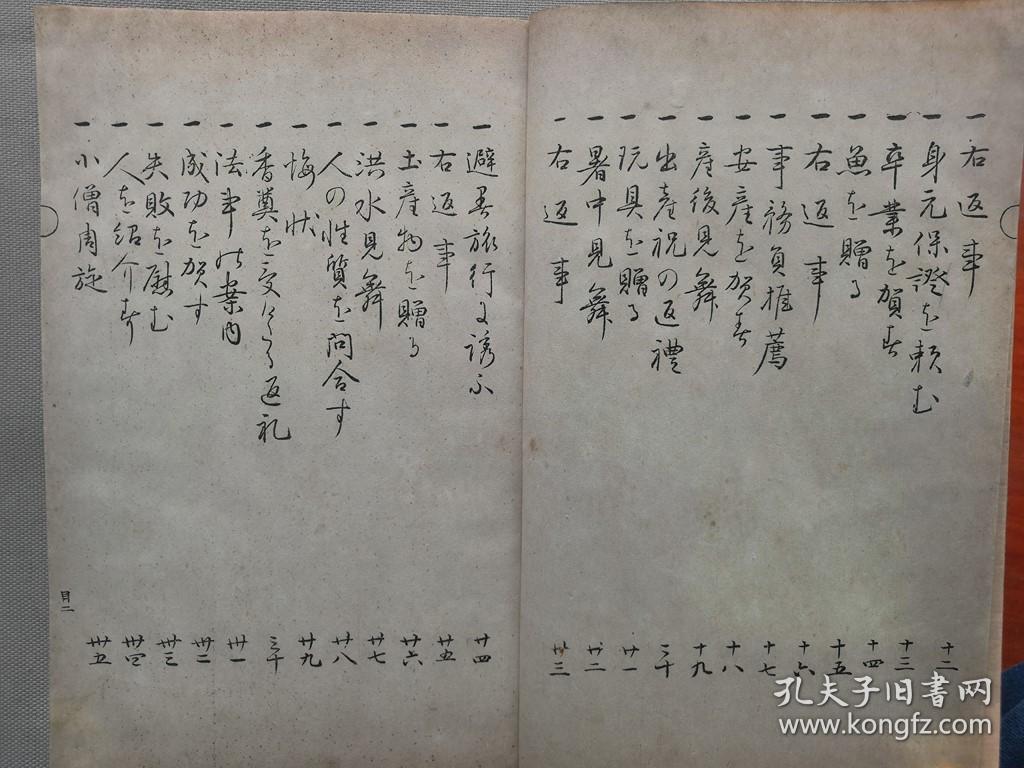 一 右返事 十二
一 身元保證を頼む 十三
一 卒業を賀す 十四
一 魚を贈る 十五
一 右返事 十六
一 事務員推薦 十七
一 安産を賀す 十八
一 産後見舞 十九
一 出産祝の返禮 二十
一 玩具を贈る 廿一
一 暑中見舞 廿二
一 右返事 廿三
一 避暑旅行に誘ふ 廿四
一 右返事 廿五
一 土産物を贈る 廿六
一 洪水見舞 廿七
一 人の性質を問合す 廿八
一 悔状 廿九
一 香奠を受けたる返礼 三十
一 法事の案内 卅一
一 成功を賀す 卅二
一 失敗を慰む 卅三
一 人を紹介す 卅四
一 小僧周旋 卅五
目二
孔夫子旧书网
www.kongfz.com